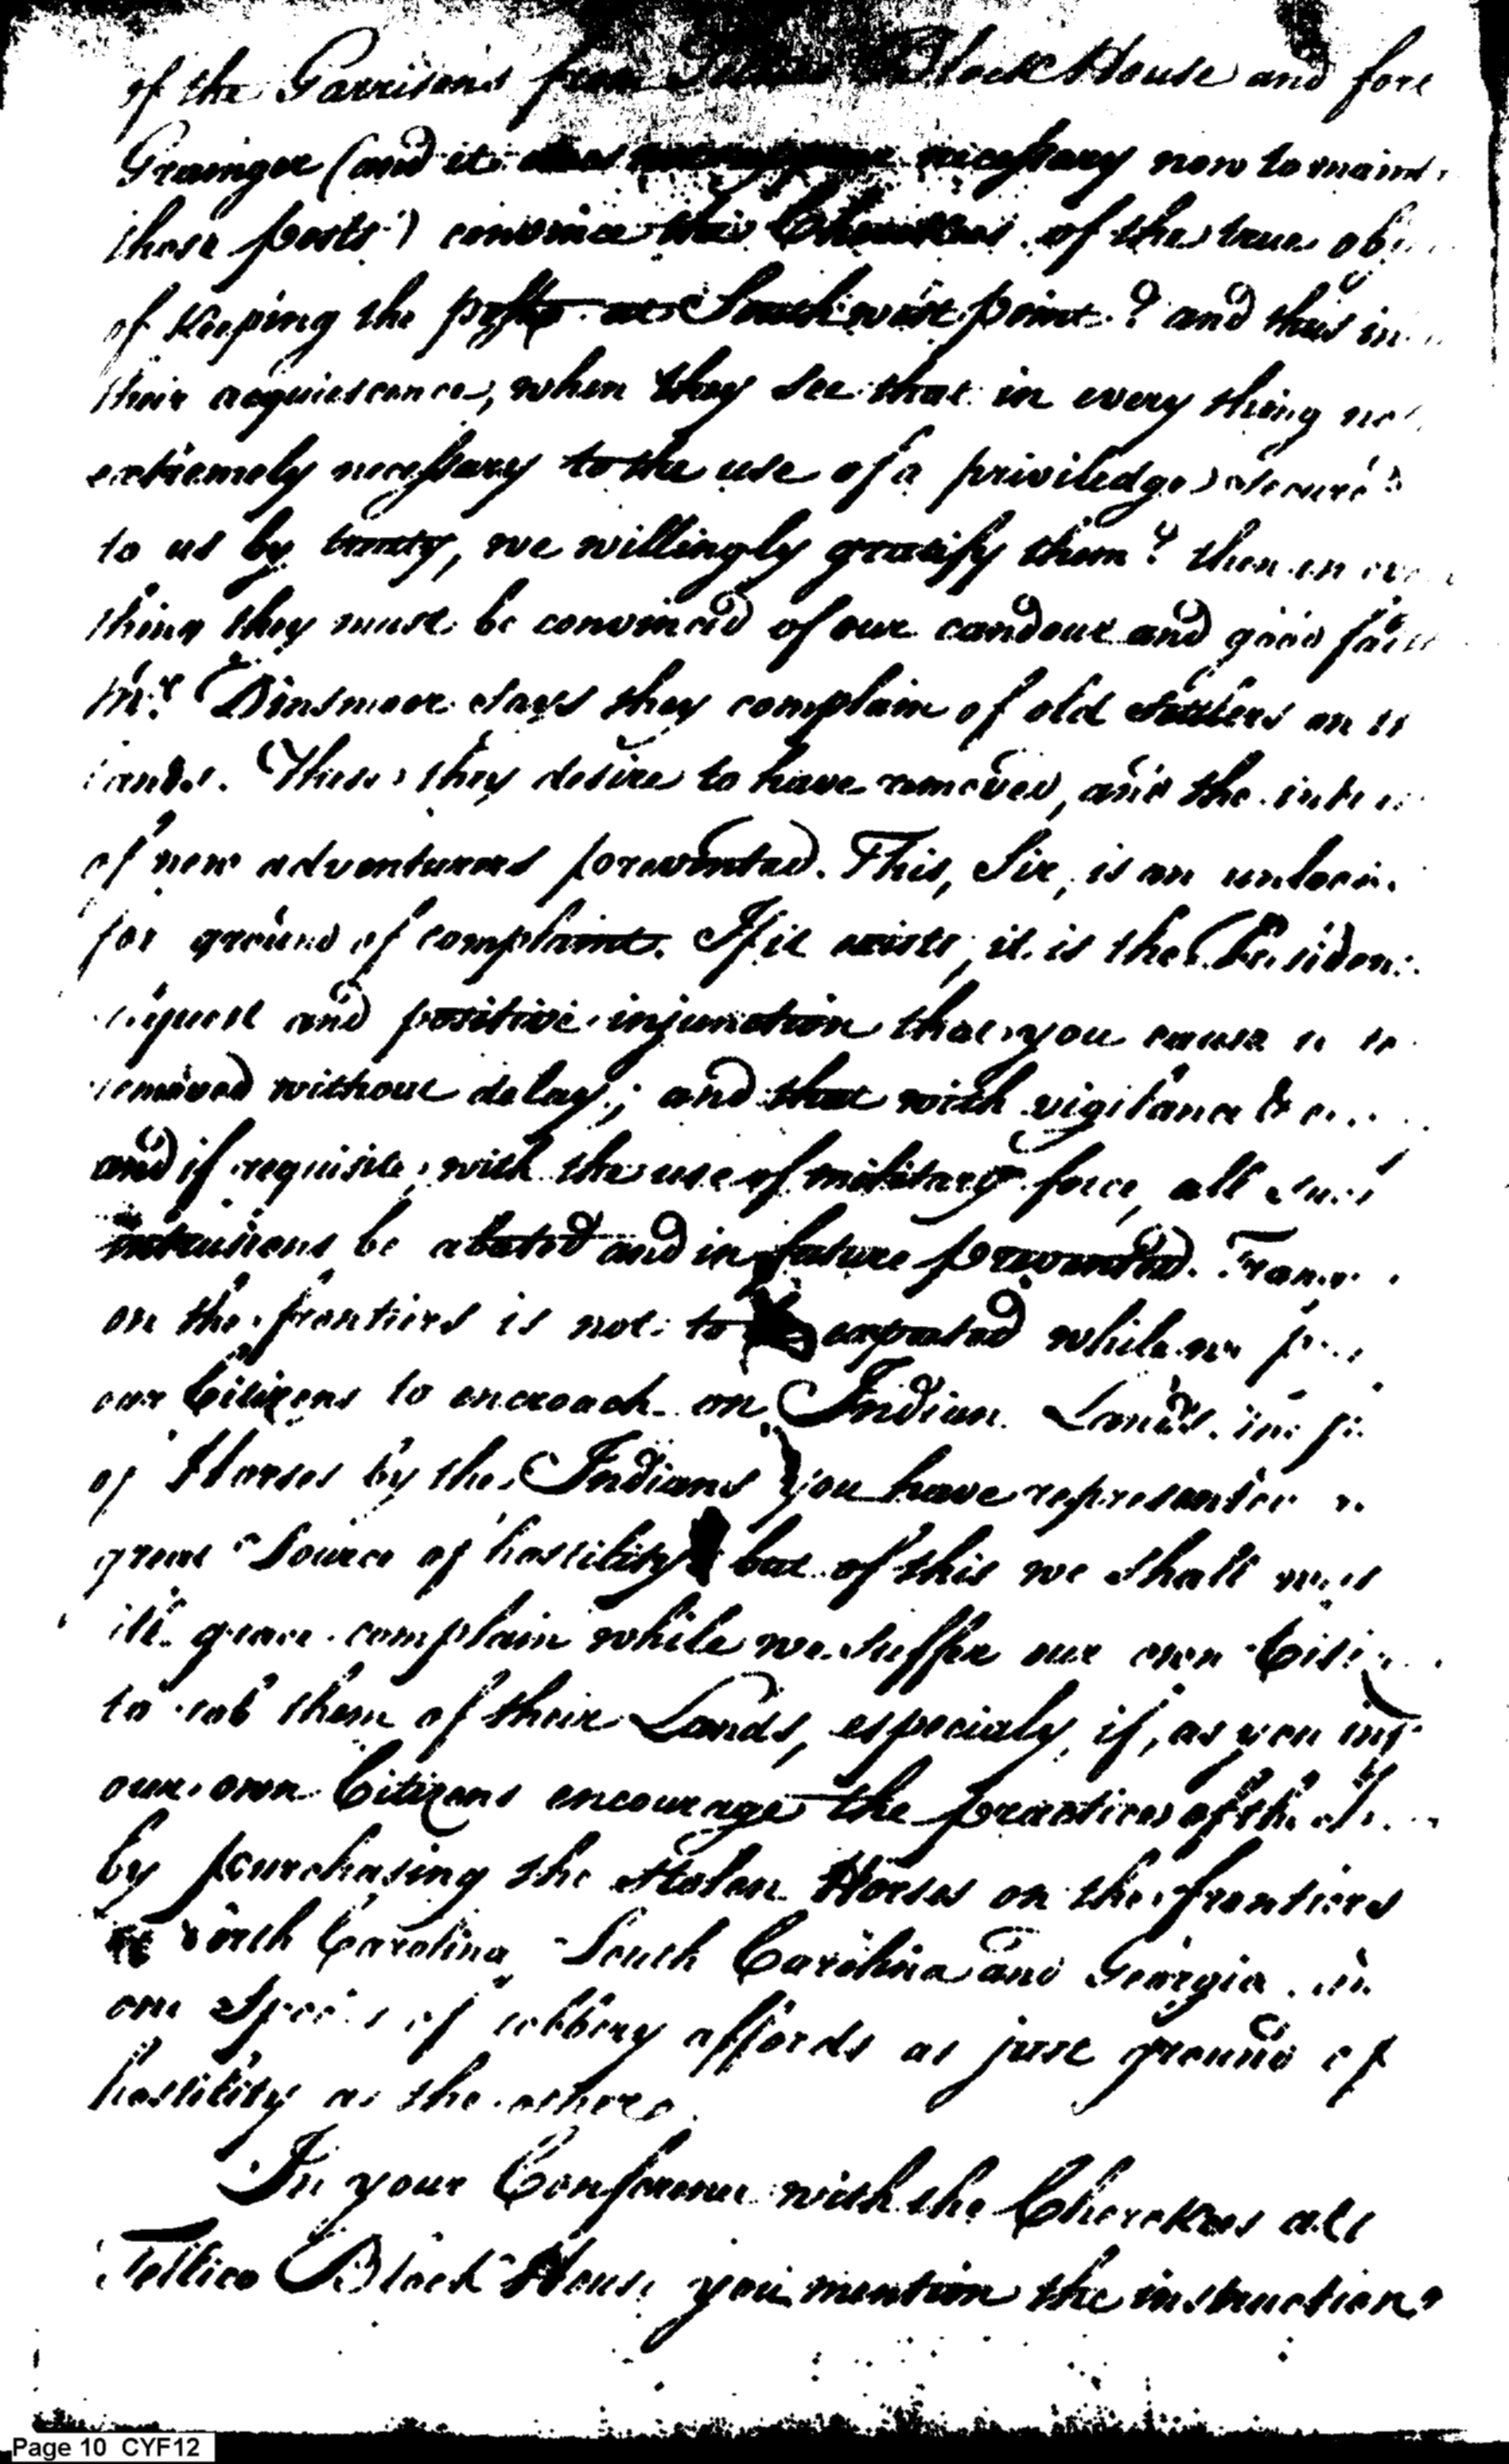 of the Garrisons from Block House and fort
Grainger (and it necessary now to maint
those posts) convince the Cherokees of the true ob
of Keeping the posts at South west point? and thus in
their acquiescence, when they see that in every thing not
extremely necessary to the use of a priviledge secured
to us by treaty, we willingly gratify them? then in eve
thing they must be convinced of our candour and good fai
Mr. Dinsmoor says they complain of old settlers on
lands. These they desire to have removed, and the int
of new adventurers prevented. This, Sir, is an unlook
for ground of complaint. If it exists, it is the Presiden
request and positive injunction that you cause it to
removed without delay; and that with vigilance &
and if requisite, with the use of military force, all such
intrusions be abated and in future prevented. Tran
on the frontiers is not to be expected while we p
our Citizens to encroach on Indian Lands.
of Horses by the Indians you have represented
great Source of hostility but of this we shall with
ill grace complain while we suffer our own Citiz
to rob them of their Lands, especialy, if, as you inf
our own Citizens encourage the practices of the
by purchasing the stolen Horses on the frontiers
of North Carolina South Carolina and Georgia.
one Species of robbery affords as just ground of
hostility as the other.
In your Conference with the Cherokees att
Tellico Block House you mention the instructions
Page 10 CYF12